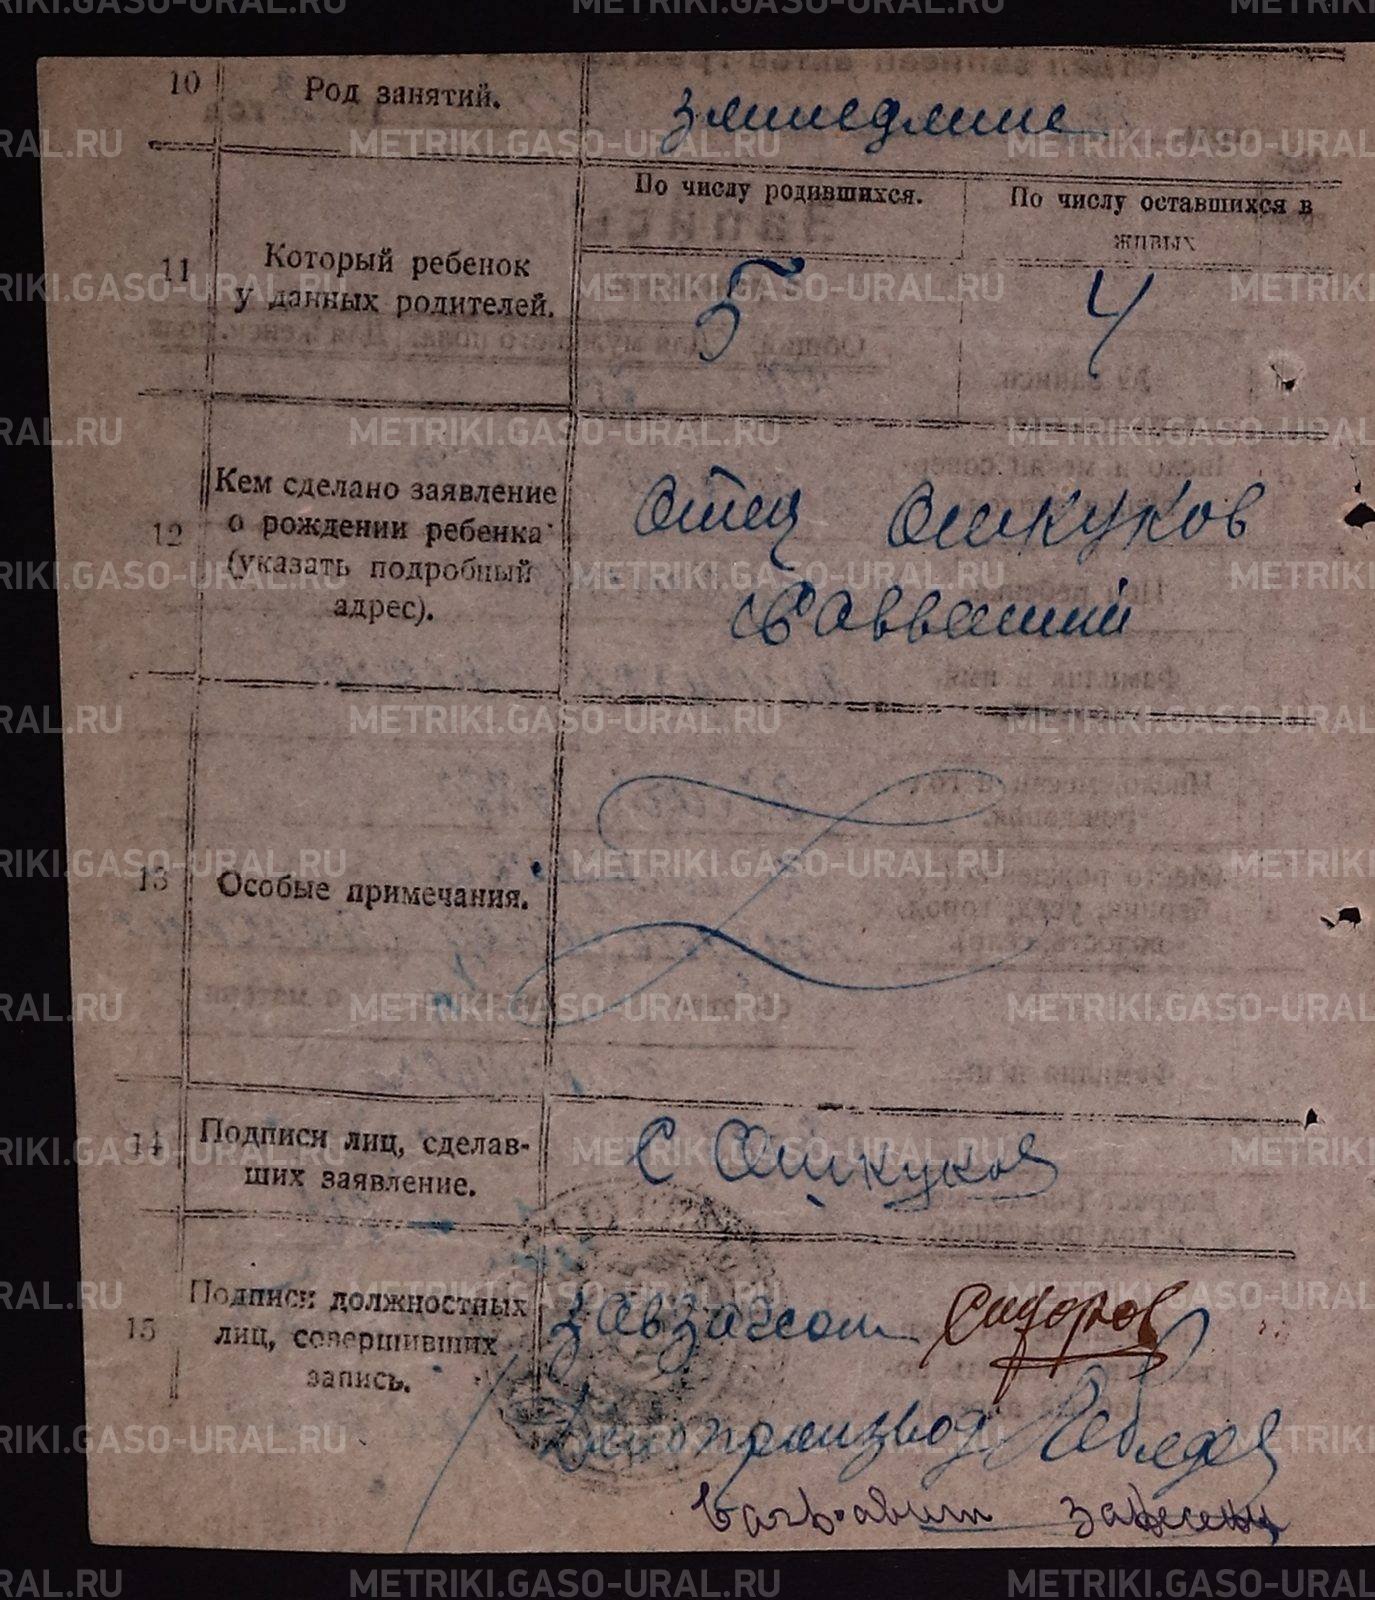 10 Род занятий. земледелие
По числу родившихся. По числу оставшихся в
живых
11 Который ребенок
у данных родителей. 5 4
Кем сделано заявление
12 о рождении ребенка
(указать подробный
адрес).
Отец Ошкуков
Савватий
13 Особые примечания.
14 Подписи лиц, сделав-
ших заявление.
С Ошкуков
15 Подписи должностных
лиц, совершивших
запись.
Завзагсом Сидоров
Делопроизвод Лебедев
в алфавит занесен
METRIKI.GASO-URAL.RU